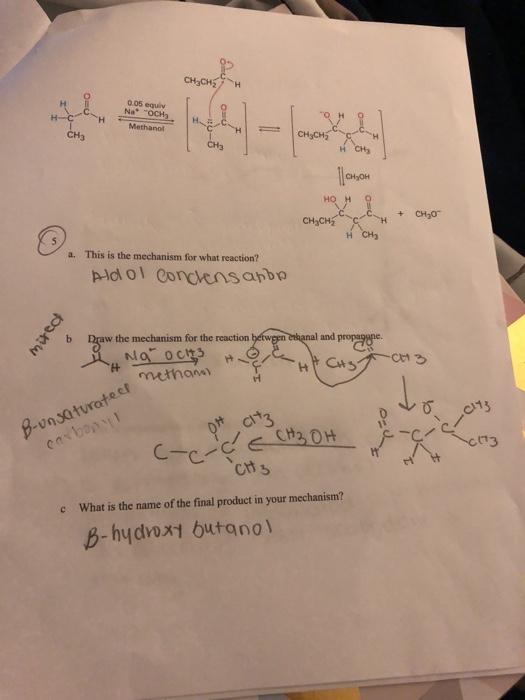 O
CH₃CH₂ H
H O
H-C-C H
CH₃
0.05 equiv
Na⁺ ⁻OCH₃
Methanol
H O
C C H
CH₃
⁻O H O
CH₃CH₂ C C C H
H CH₃
CH₃OH
HO H O
CH₃CH₂ C C C H + CH₃O⁻
H CH₃
5
a. This is the mechanism for what reaction?
Aldol condensation
mixed
b Draw the mechanism for the reaction between ethanal and propanone.
O H
Na⁻ OCH3
methanol
H C C H + CH3 CH3
H
B-unsaturated
carbonyl
O O⁻ CH3
H C-C-C CH3
H H
CH3OH
OH CH3
C-C-C
CH3
c What is the name of the final product in your mechanism?
B-hydroxy butanol